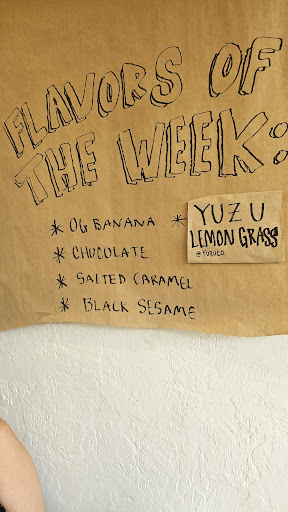 FLAVORS OF
THE WEEK:
* OG BANANA
* CHOCOLATE
* SALTED CARAMEL
* BLACK SESAME
* YUZU
LEMON GRASS
@YUZUCO